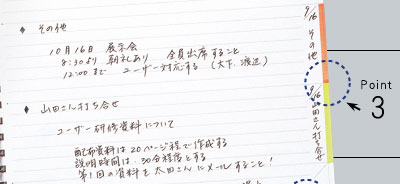 ♦ その他
10月16日 展示会
8:30より 朝礼あり 全員出席すること
12:00まで ユーザー対応する (大下、渡辺)
♦ 山田さん打ち合せ
ユーザー研修資料について
配布資料は20ページ程で作成する
説明時間は、30分程度とする
第1回の資料を太田さんにメールすること!
9/16 その他
9/16 山田さん打ち合せ
Point
3